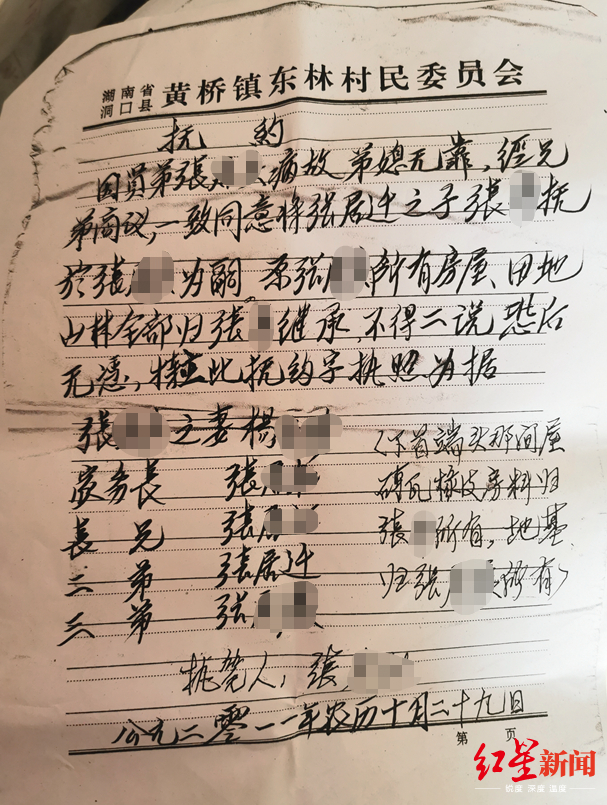 湖南省
洞口县 黄桥镇东林村民委员会
抚 約
因 弟張 病故 弟媳无靠,經兄
弟商议,一致同意将张居迁之子張 抚
於張 为嗣 原张 所有房屋、田地
山林全部归张 继承,不得二说 恐后
无憑,特立此抚约字执照为据
張 之妻楊
务長 张居
長 兄 张居
二 弟 张居迁
三 弟 张
(下首端头那间屋
砖瓦椽皮房料归
张 所有,地基
归张 所有)
执笔人,張
公元二零一一年农历十月二十九日
第 页
红星新闻
锐度 深度 温度